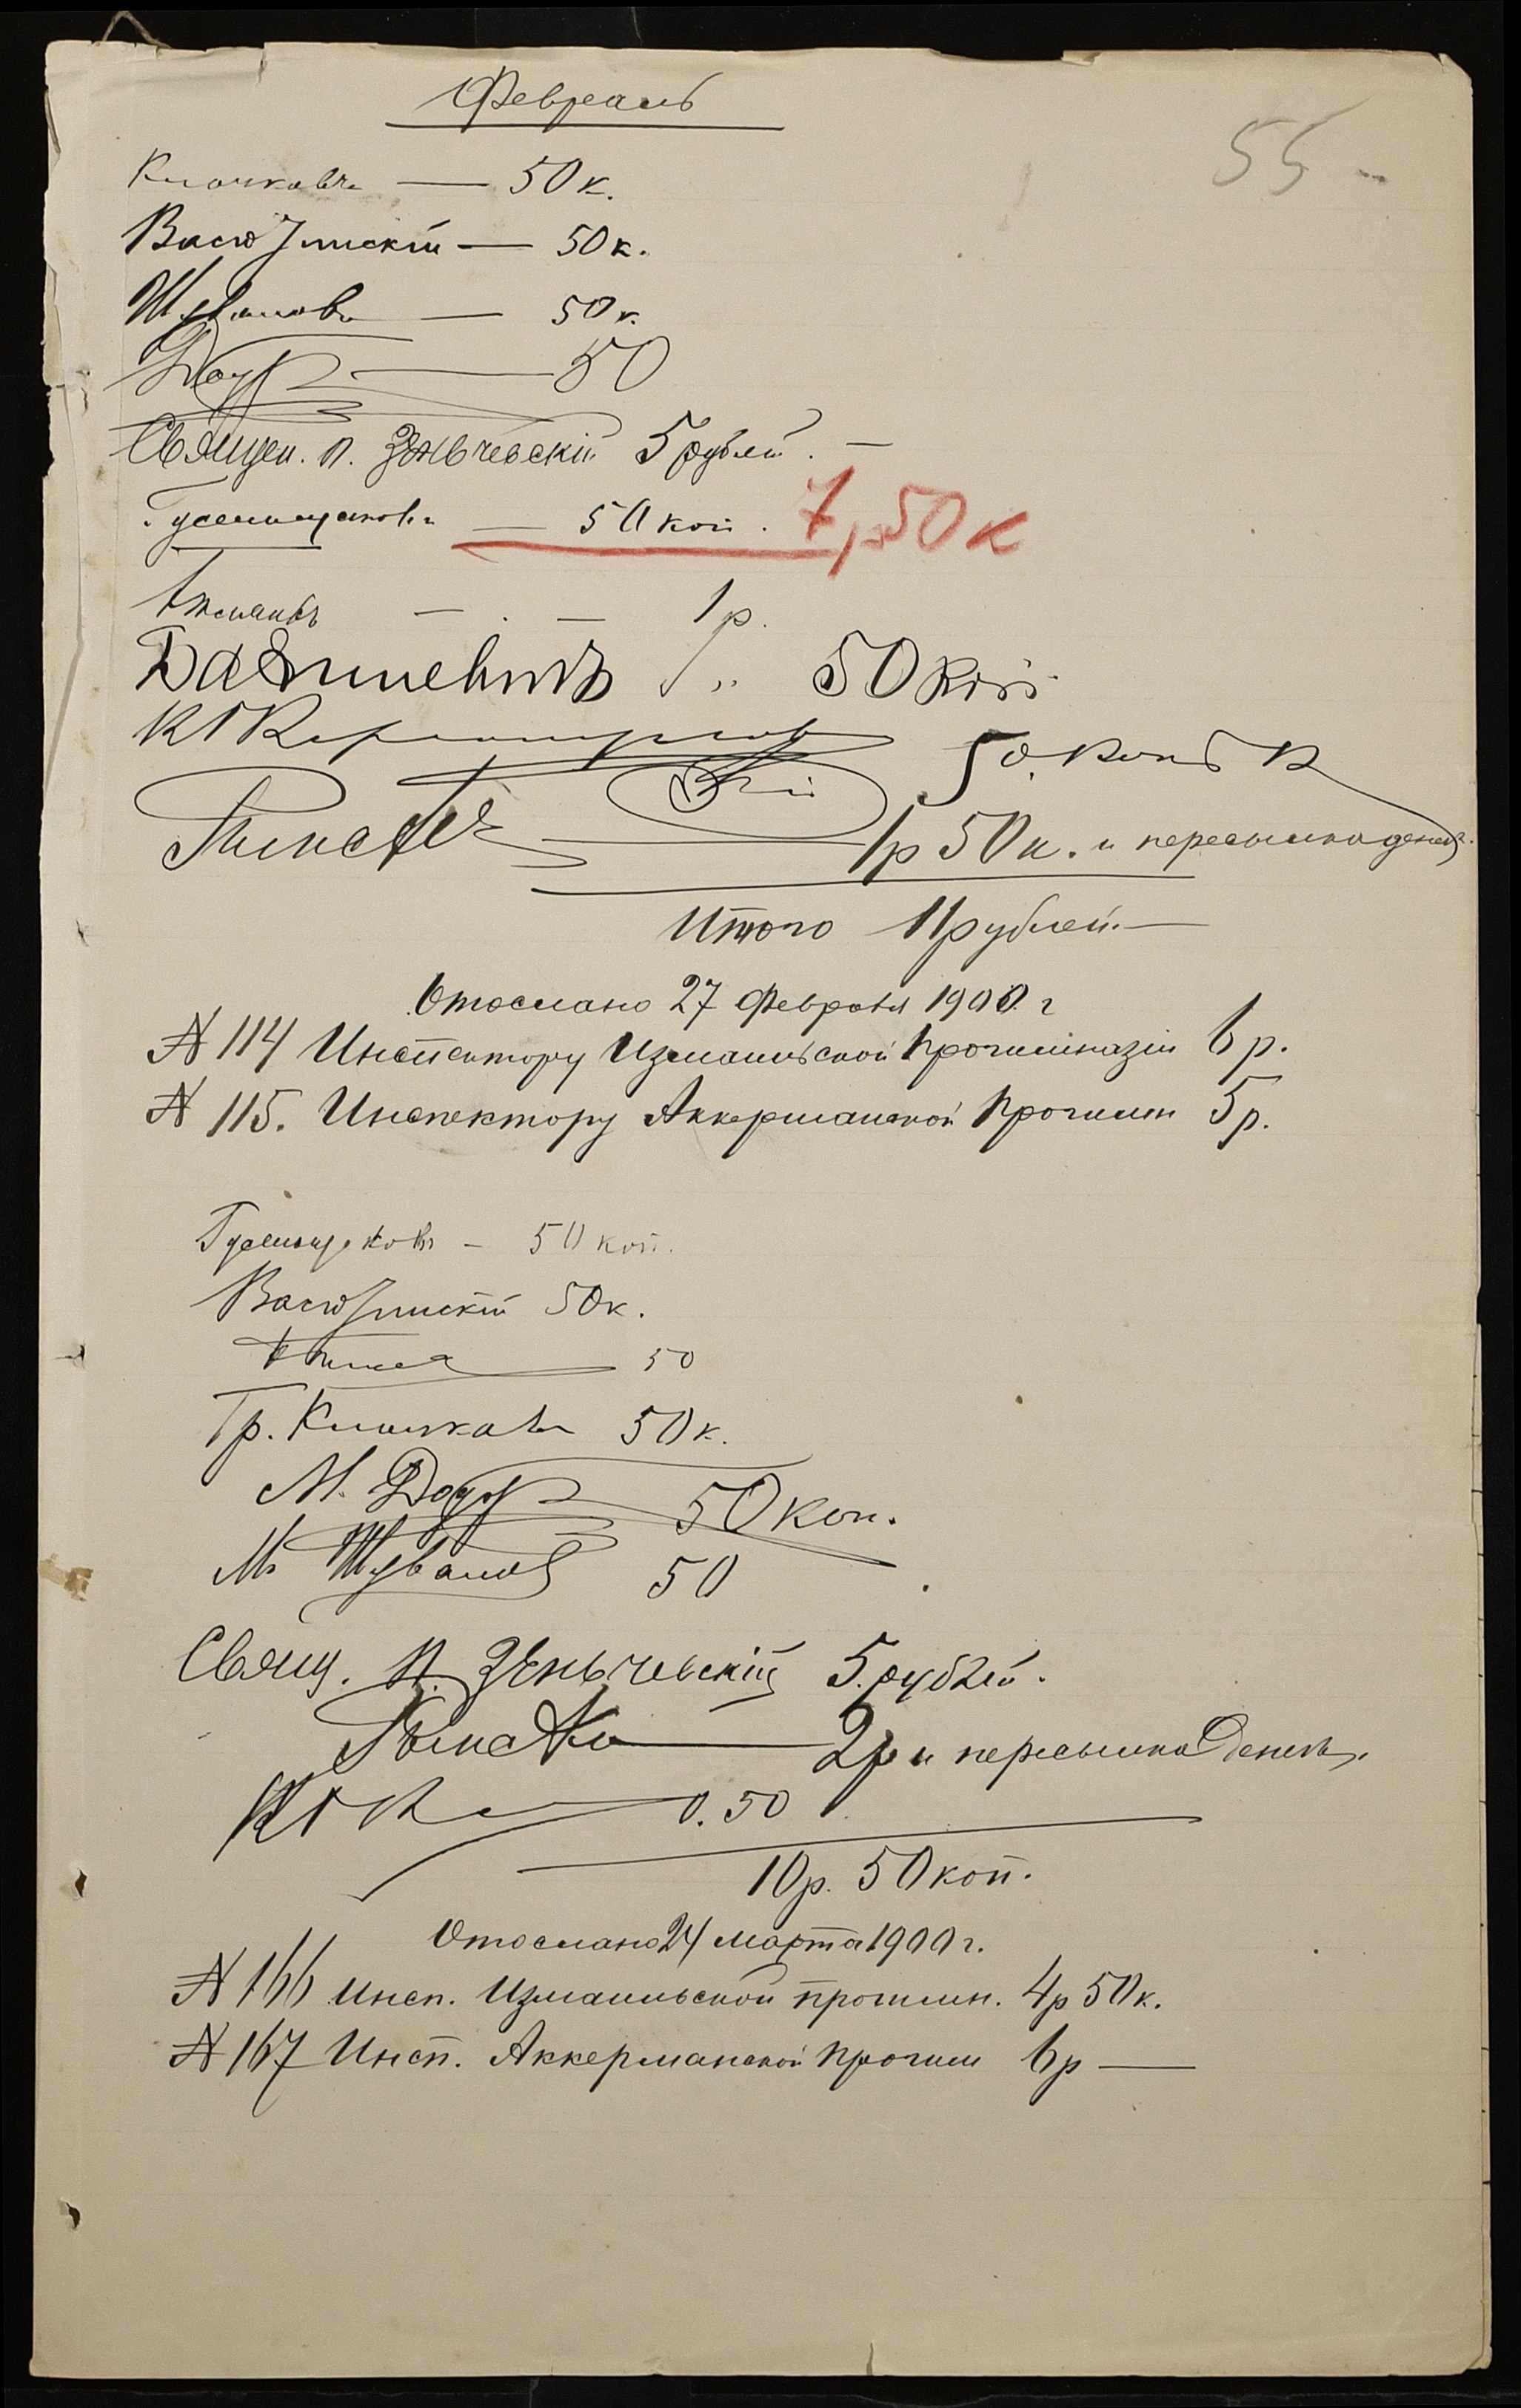 Февраль
55
Клочковъ — 50 к.
Васюлинскій — 50 к.
Шуваловъ — 50 к.
Доур — 50
Священ. П. Зеньчевскій 5 рублей. —
Гусельщиковъ — 50 коп. 7р 50 к
— . — 1 р.
50 коп
50. Копѣк
1р 50 к. и пересылка денегъ.
Итого 11 рублей. —
Отослано 27 февраля 1900 г
№ 114 Инспектору Измаильской прогимназіи 6 р.
№ 115. Инспектору Аккерманской прогимн 5 р.
Гусельщиковъ — 50 коп.
Васюлинскій 50 к.
50
Гр. Клочковъ 50 к.
М. Доур 50 коп.
М. Шувалов 50
Свящ. П. Зеньчевскій 5. рублей.
2р и пересылка денегъ.
0.50
10 р. 50 коп.
Отослано 24 марта 1900 г.
№ 166 Инсп. Измаильской прогимн. 4р 50 к.
№ 167 Инсп. Аккерманской прогим 6р —